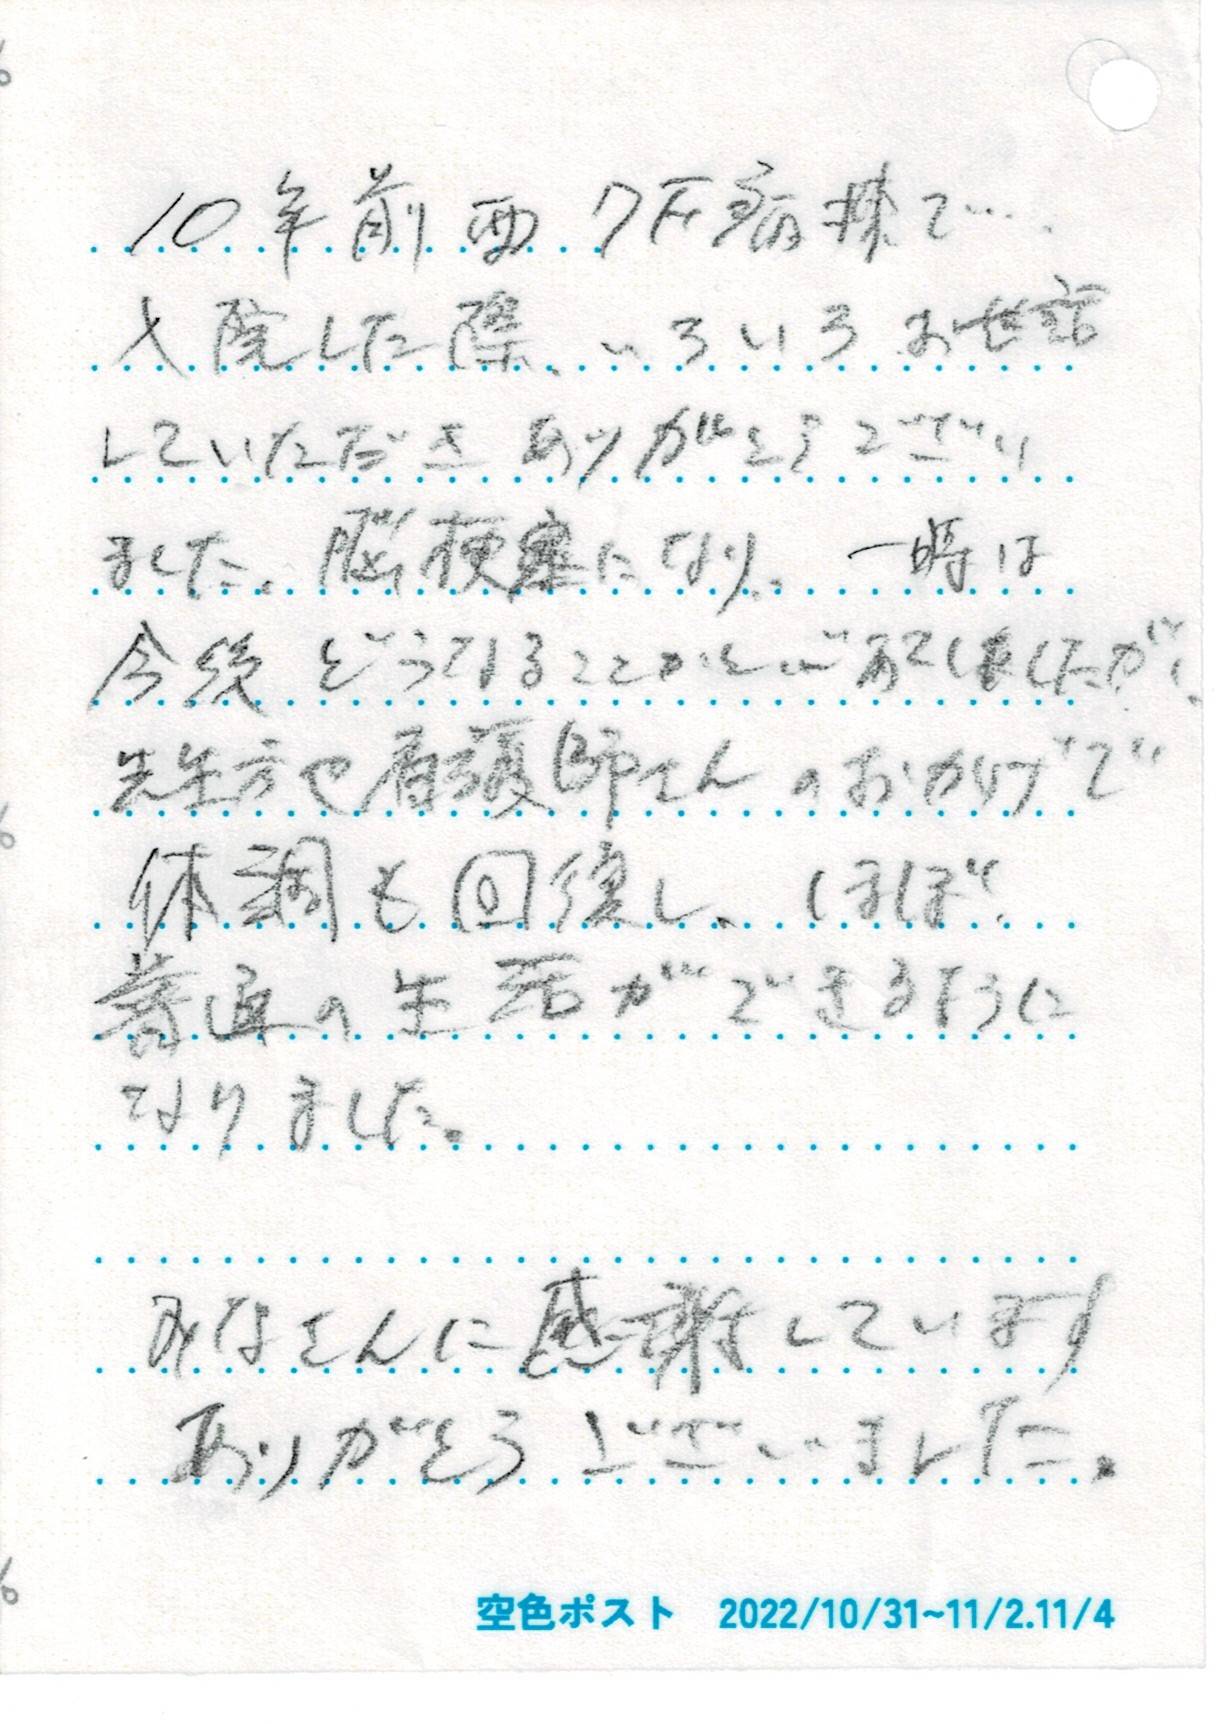 10年前西7F病棟で…
入院した際、いろいろお世話
していただきありがとうござい
ました。脳梗塞になり、一時は
今後どうなることかと
先生方や看護師さんのおかげで
体調も回復し、ほぼ
普通の生活ができるように
なりました。
みなさんに感謝しています
ありがとうございました。
空色ポスト 2022/10/31~11/2.11/4